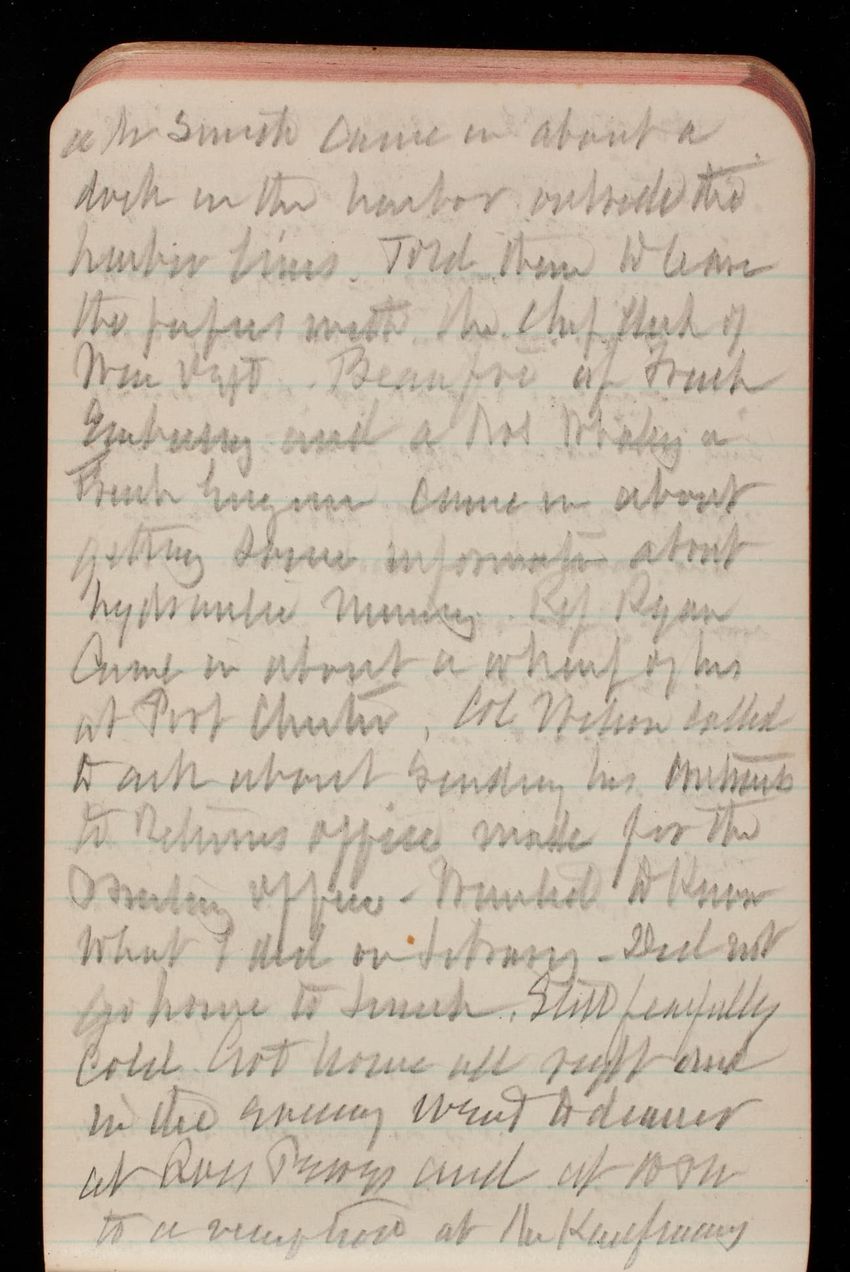 a Mr Smith came in about a
dock in the harbor outside the
harbor lines. Told them to leave
the papers with the Chf Clerk of
War Dept. Beaufre of French
Embassy and a
French Engineer came in about
getting some information about
hydraulic Mining. Rep Ryan
Came in about a wharf of his
at Port Chester. Col Wilson called
to ask about sending his Contracts
to Returns office made for the
Printing Office - Wanted to Know
What I did on Library - Did not
go home to lunch. Still fearfully
Cold. Got home all right and
in the evening went to dinner
at Ross Perrys and at
to a reception at Mr Kauffmans